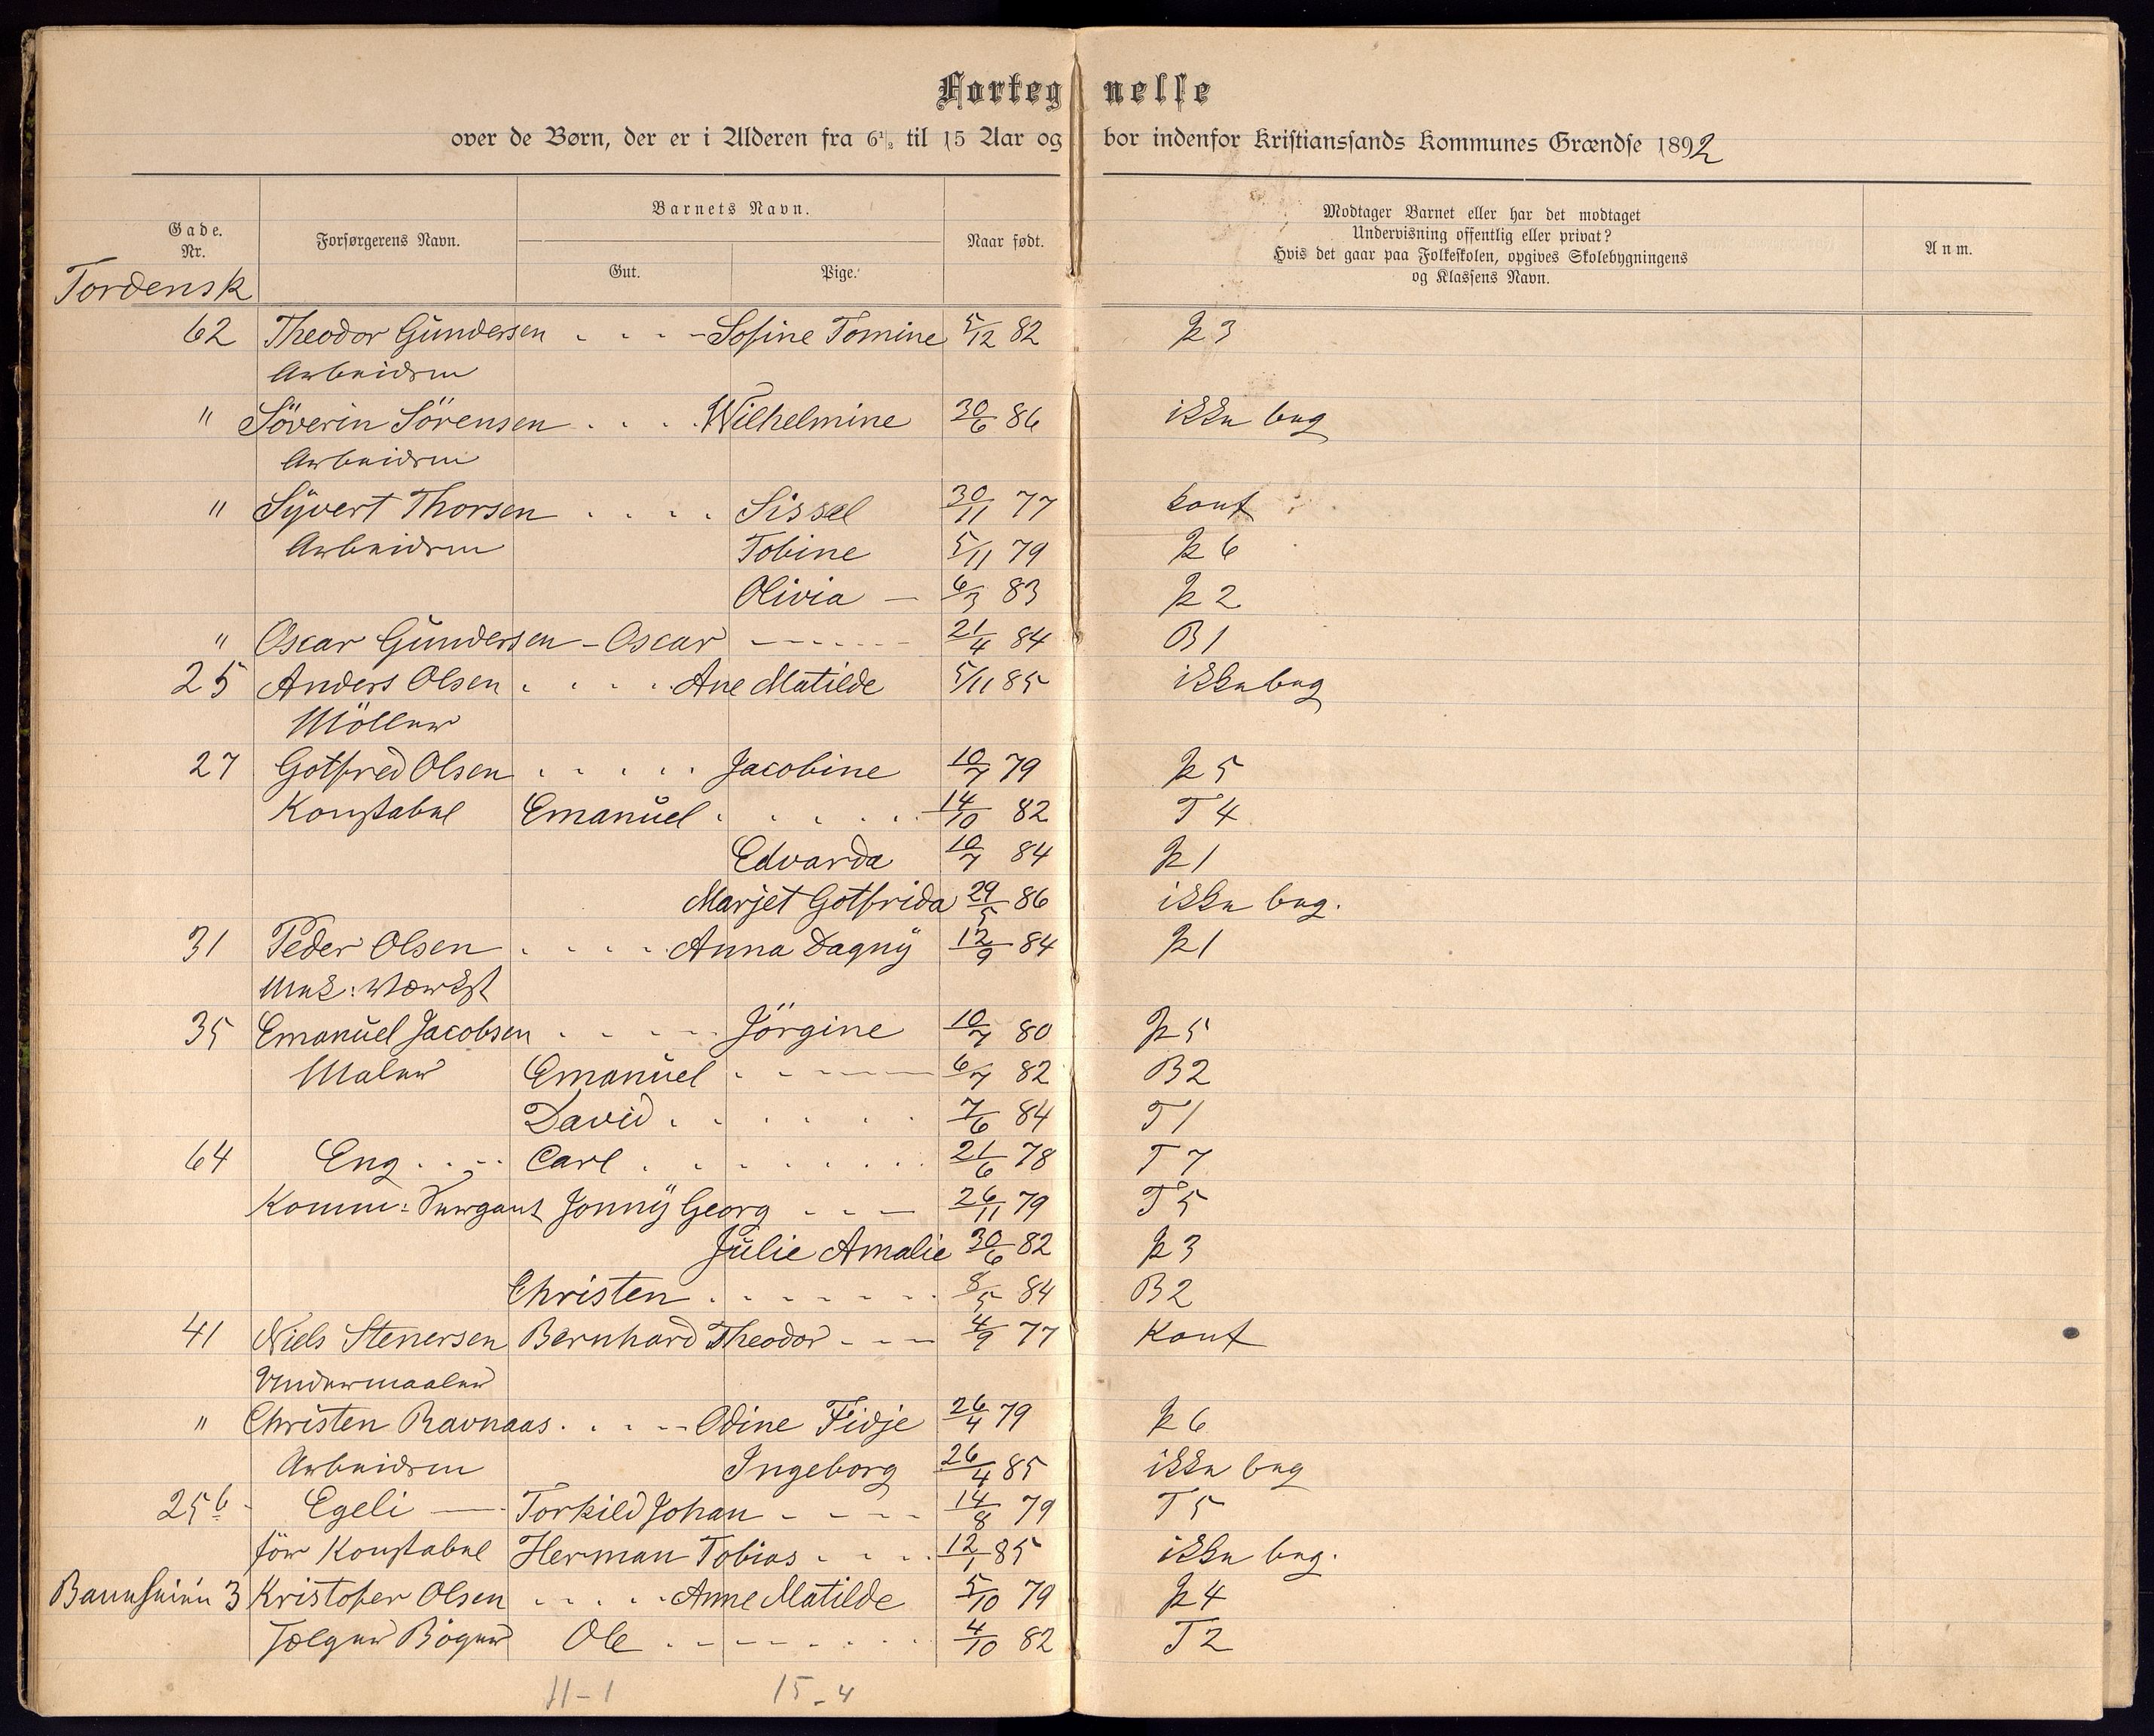 Fortegnelse
over de Børn, der er i Alderen fra 6½ til 15 Aar og bor indenfor Kristianssands Kommunes Grændse 1892
Gade. Nr. Forsørgerens Navn. Barnets Navn. Gut. Pige. Naar født. Modtager Barnet eller har det modtaget Undervisning offentlig eller privat? Hvis det gaar paa Folkeskolen, opgives Skolebygningens og Klassens Navn. Anm.
Tordensk
62 Theodor Gundersen Sofine Tomine 5/12 82 P 3
Arbeidsm
" Söverin Sörensen Wilhelmine 30/6 86 ikke beg
Arbeidsm
" Syvert Thorsen Sissel 30/11 77 konf
Arbeidsm Tobine 5/11 79 P 6
Olivia 6/3 83 P 2
" Oscar Gundersen Oscar 21/4 84 B 1
25 Anders Olsen Ane Matilde 5/11 85 ikke beg
Möller
27 Gotfred Olsen Jacobine 10/7 79 P 5
Konstabel Emanuel 14/10 82 T 4
Edvarda 10/7 84 P 1
Marjet Gotfrida 29/5 86 ikke beg.
31 Peder Olsen Anna Dagny 12/9 84 P 1
Mek: Værkst
35 Emanuel Jacobsen Jörgine 10/7 80 P 5
Maler Emanuel 6/7 82 B 2
David 7/6 84 T 1
64 Eng Carl 21/6 78 T 7
Komm: Sergant Jonny Georg 26/11 79 T 5
Julie Amalie 30/6 82 P 3
Christen 8/5 84 B 2
41 Niels Stenersen Bernhard Theodor 4/9 77 Konf
" Christen Ravnaas Odine Fidje 26/4 79 P 6
Arbeidsm Ingeborg 26/4 85 ikke beg
25 b Egeli Torkild Johan 14/8 79 T 5
för Konstabel Herman Tobias 12/1 85 ikke beg.
3 Kristofer Olsen Anne Matilde 5/10 79 P 4
Sælger Böger Ole 4/10 82 T 2
11-1 15-4